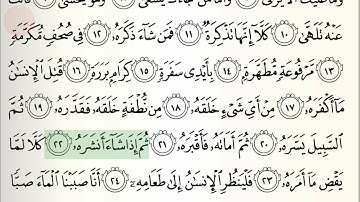 عَنْهُ تَلَهَّىٰ ١٠ كَلَّآ إِنَّهَا تَذْكِرَةٌ ١١ فَمَن شَآءَ ذَكَرَهُۥ ١٢ فِى صُحُفٍ مُّكَرَّمَةٍ
١٣ مَّرْفُوعَةٍ مُّطَهَّرَةٍۭ ١٤ بِأَيْدِى سَفَرَةٍ ١٥ كِرَامٍۭ بَرَرَةٍ ١٦ قُتِلَ ٱلْإِنسَٰنُ
مَآ أَكْفَرَهُۥ ١٧ مِنْ أَىِّ شَىْءٍ خَلَقَهُۥ ١٨ مِن نُّطْفَةٍ خَلَقَهُۥ فَقَدَّرَهُۥ ١٩ ثُمَّ
ٱلسَّبِيلَ يَسَّرَهُۥ ٢٠ ثُمَّ أَمَاتَهُۥ فَأَقْبَرَهُۥ ٢١ ثُمَّ إِذَا شَآءَ أَنشَرَهُۥ ٢٢ كَلَّا لَمَّا
يَقْضِ مَآ أَمَرَهُۥ ٢٣ فَلْيَنظُرِ ٱلْإِنسَٰنُ إِلَىٰ طَعَامِهِۦٓ ٢٤ أَنَّا صَبَبْنَا ٱلْمَآءَ صَبًّا